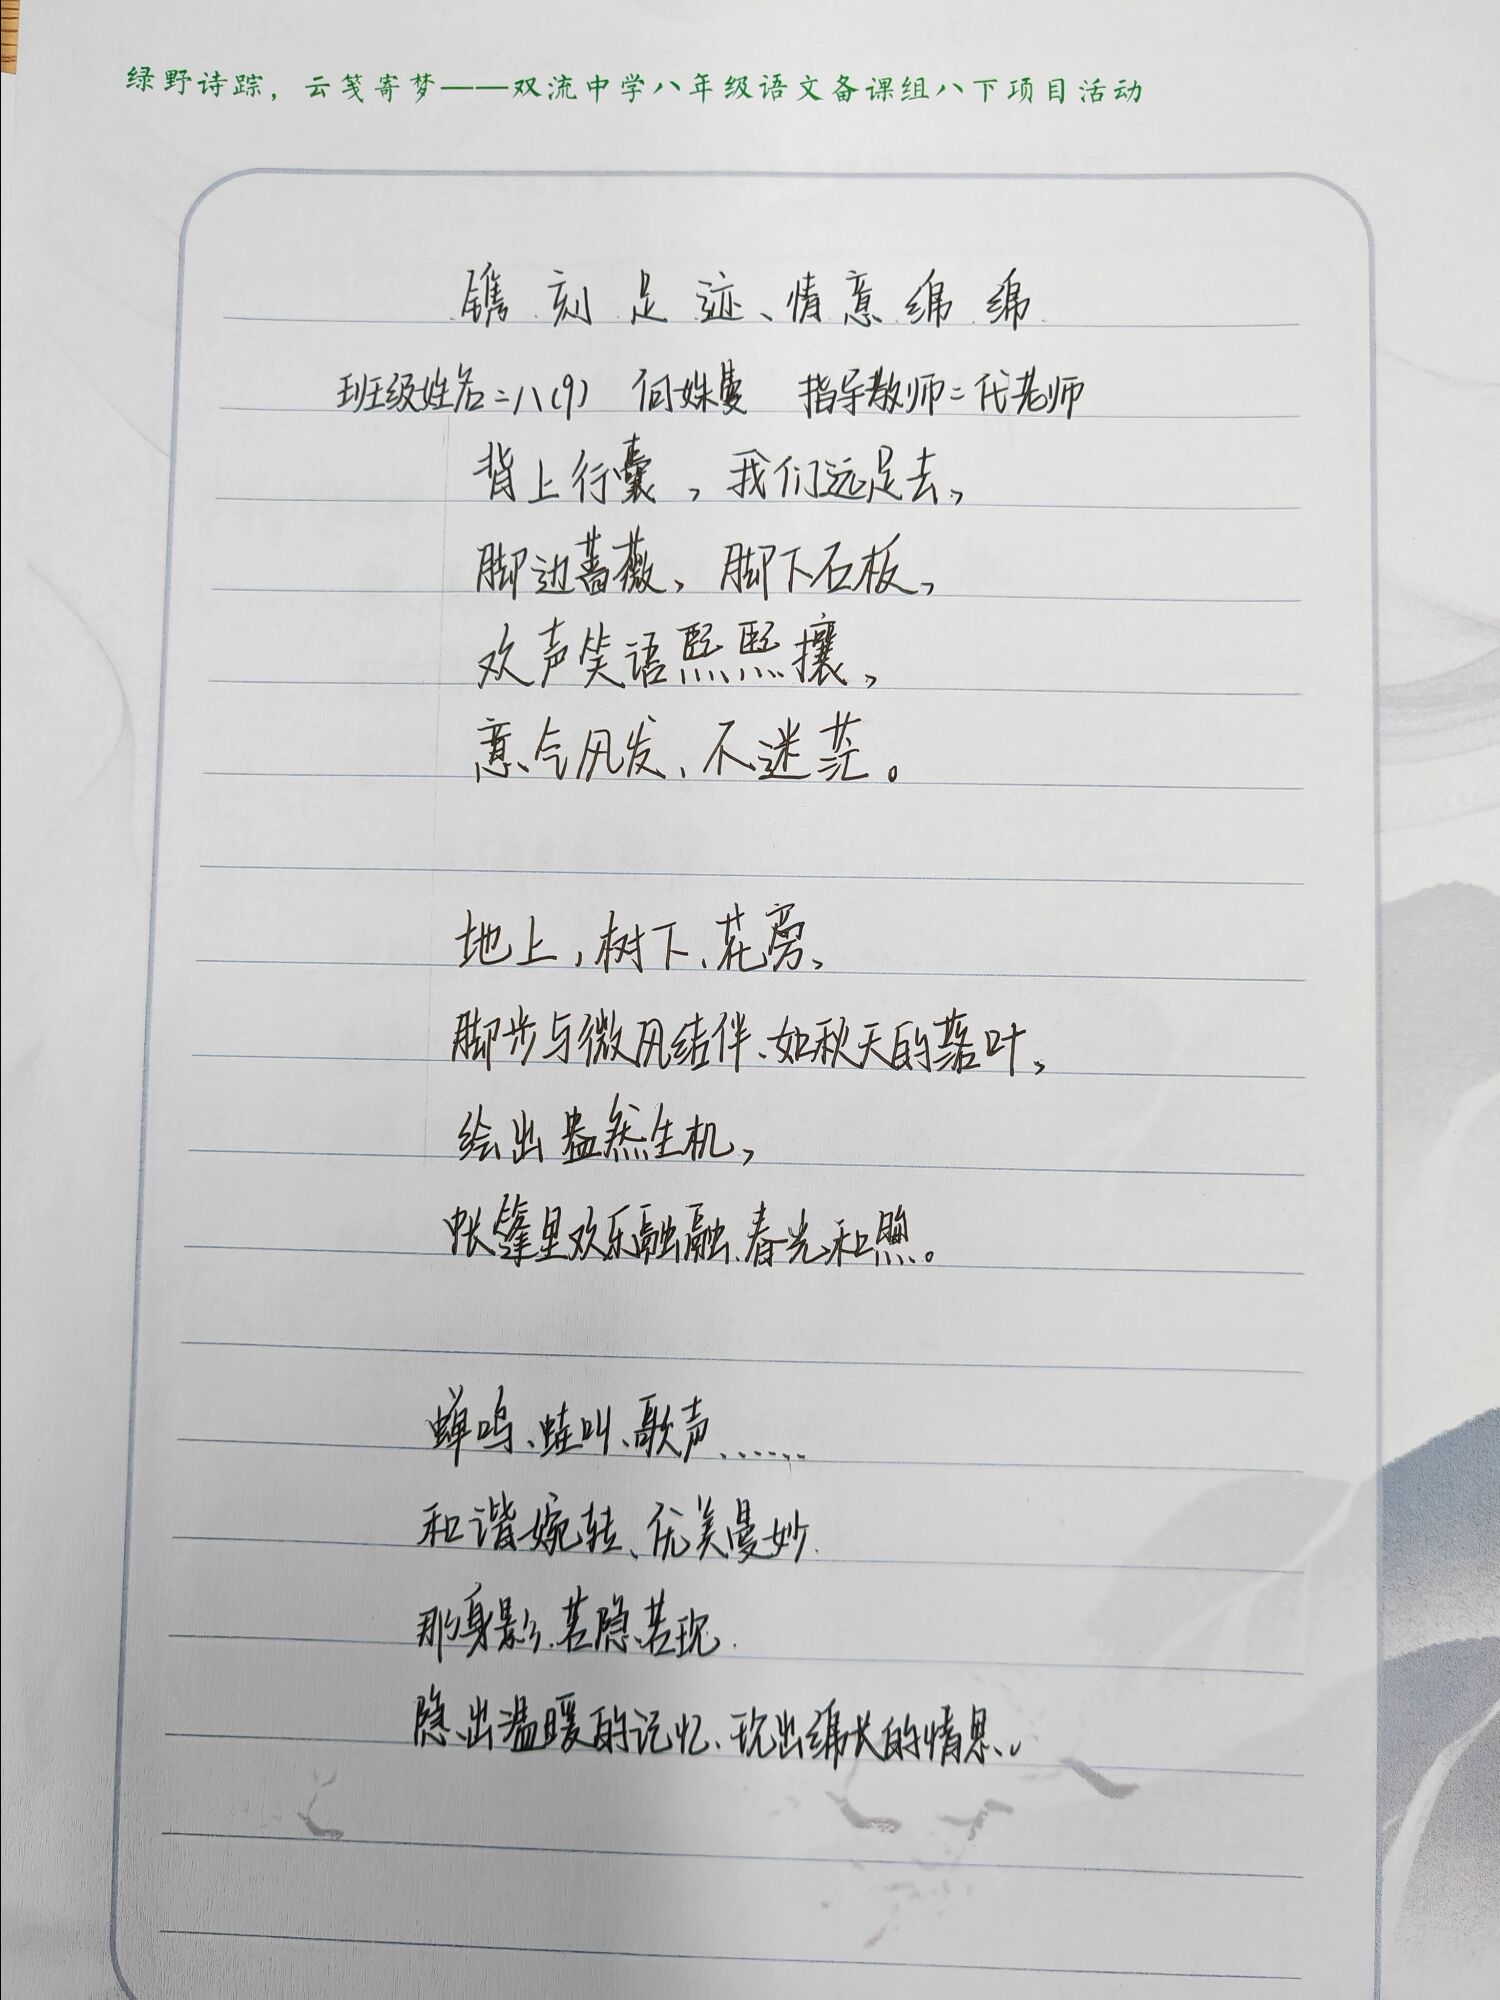 绿野诗踪，云笺寄梦——双流中学八年级语文备课组八下项目活动
镌刻足迹、情意绵绵
班级姓名：八(9) 何姝曼 指导教师：代老师
背上行囊，我们远足去，
脚边蔷薇，脚下石板，
欢声笑语熙熙攘，
意气风发、不迷茫。
地上，树下、花旁、
脚步与微风结伴、如秋天的落叶，
绘出盎然生机，
帐篷里欢乐融融、春光和煦。
蝉鸣、蛙叫、歌声……
和谐婉转、优美曼妙.
那身影.若隐若现.
隐出温暖的记忆、现出绵长的情思。